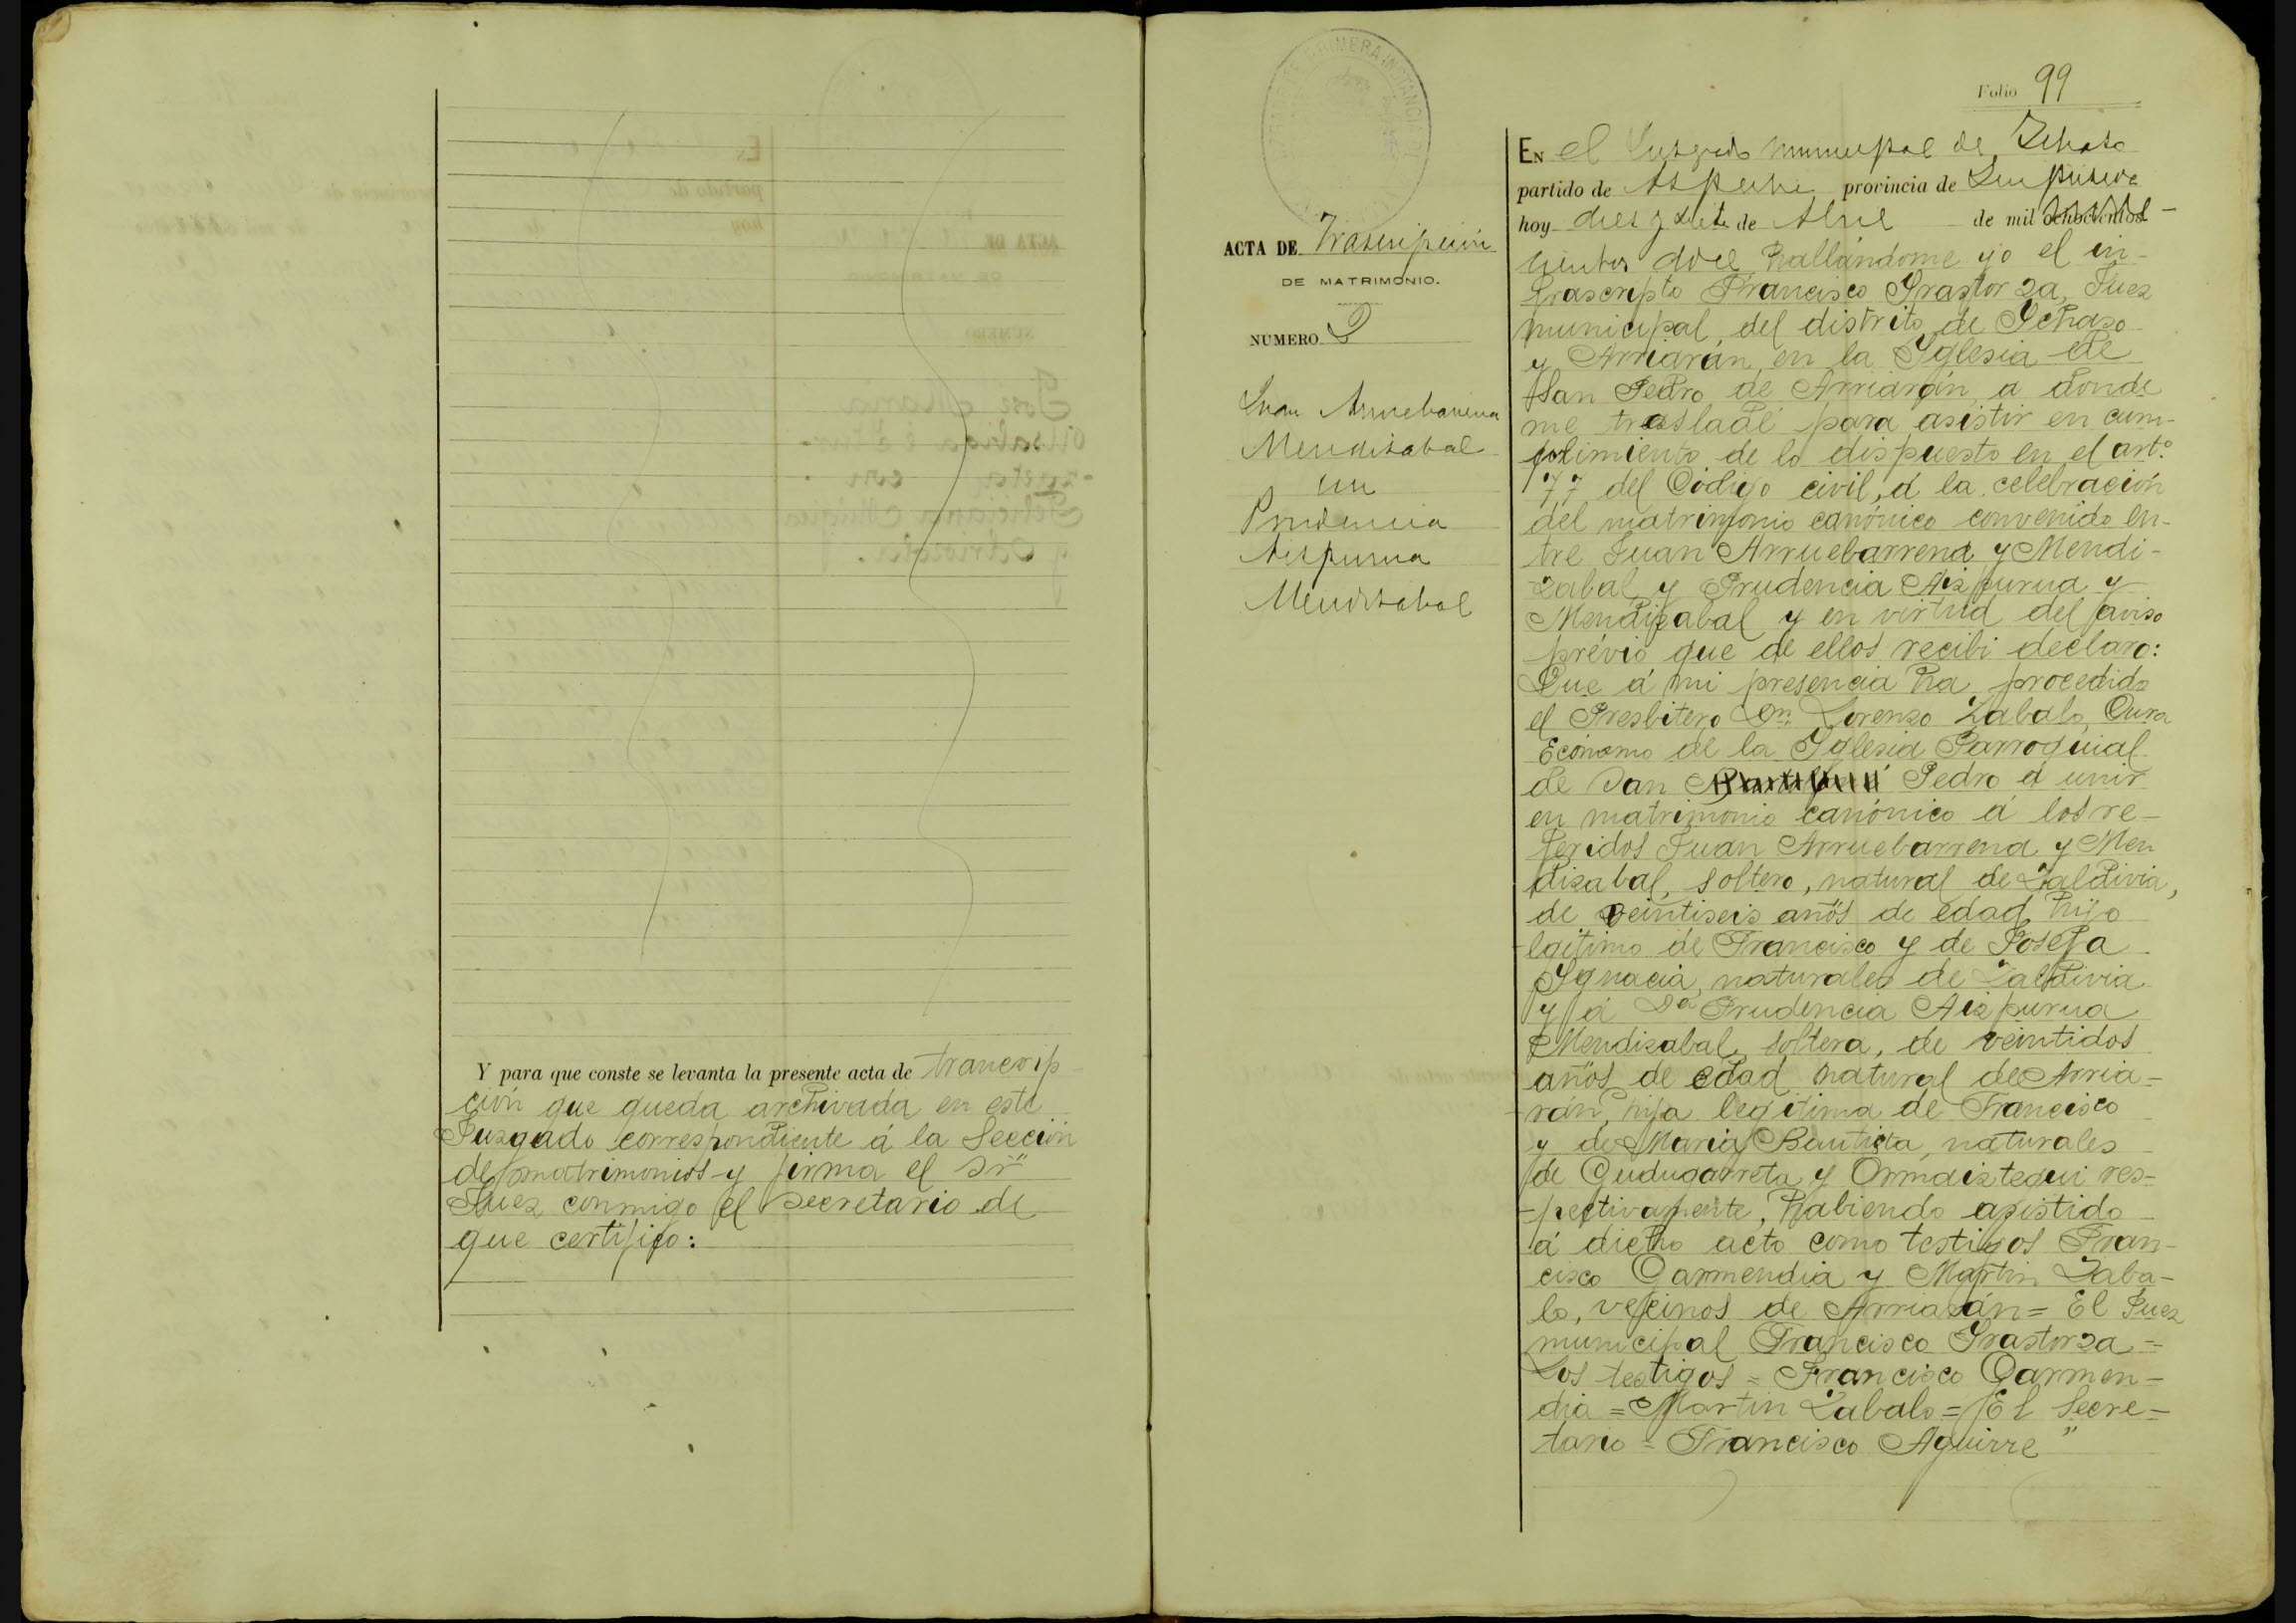 Y para que conste se levanta la presente acta de trancrip-
ción que queda archivada en este
Juzgado correspondiente á la Sección
de matrimonios y firma el Sr
Juez conmigo el Secretario de
que certifico:
PRIMERA INSTANCIA
Folio 99
ACTA DE Trascripción
DE MATRIMONIO.
NUMERO 2
Juan Arruebarrena
Mendizabal
con
Prudencia
Aizpurua
Mendizabal
EN el Juzgado municipal de Ichaso
partido de Azpeitia provincia de Guipúzcoa
hoy diez y siete de Abril de mil ochocientos
cientos doce hallándome yo el in-
frascripto Francisco Irastorza, Juez
municipal del distrito de Ichaso
y Arriarán, en la Iglesia de
San Pedro de Arriarán, a donde
me trasladé para asistir en cum-
plimiento de lo dispuesto en el artº
77 del Código civil, á la celebración
del matrimonio canónico convenido en-
tre Juan Arruebarrena y Mendi-
zabal y Prudencia Aizpurua y
Mendizabal y en virtud del aviso
prévio que de ellos recibi declaro:
Que á mi presencia ha procedido
el Presbitero Dn. Lorenzo Zabalo, Cura
Ecónomo de la Iglesia Parroquial
de San Pedro á unir
en matrimonio canónico á los re-
feridos Juan Arruebarrena y Men
dizabal, soltero, natural de Zaldivia,
de veintiseis años de edad, hijo
legítimo de Francisco y de Josefa
Ignacia, naturales de Zaldivia
y á Dª Prudencia Aizpurua
Mendizabal, soltera, de veintidos
años de edad natural de Arria-
rán, hija legítima de Francisco
y de Maria Bautista, naturales
de Gudugarreta y Ormaiztegui res-
pectivamente, habiendo asistido
á dicho acto como testigos Fran-
cisco Garmendia y Martin Zaba-
lo, vecinos de Arriarán = El Juez
municipal Francisco Irastorza =
Los testigos = Francisco Garmen-
dia = Martin Zabalo = El Secre-
tario = Francisco Aguirre"